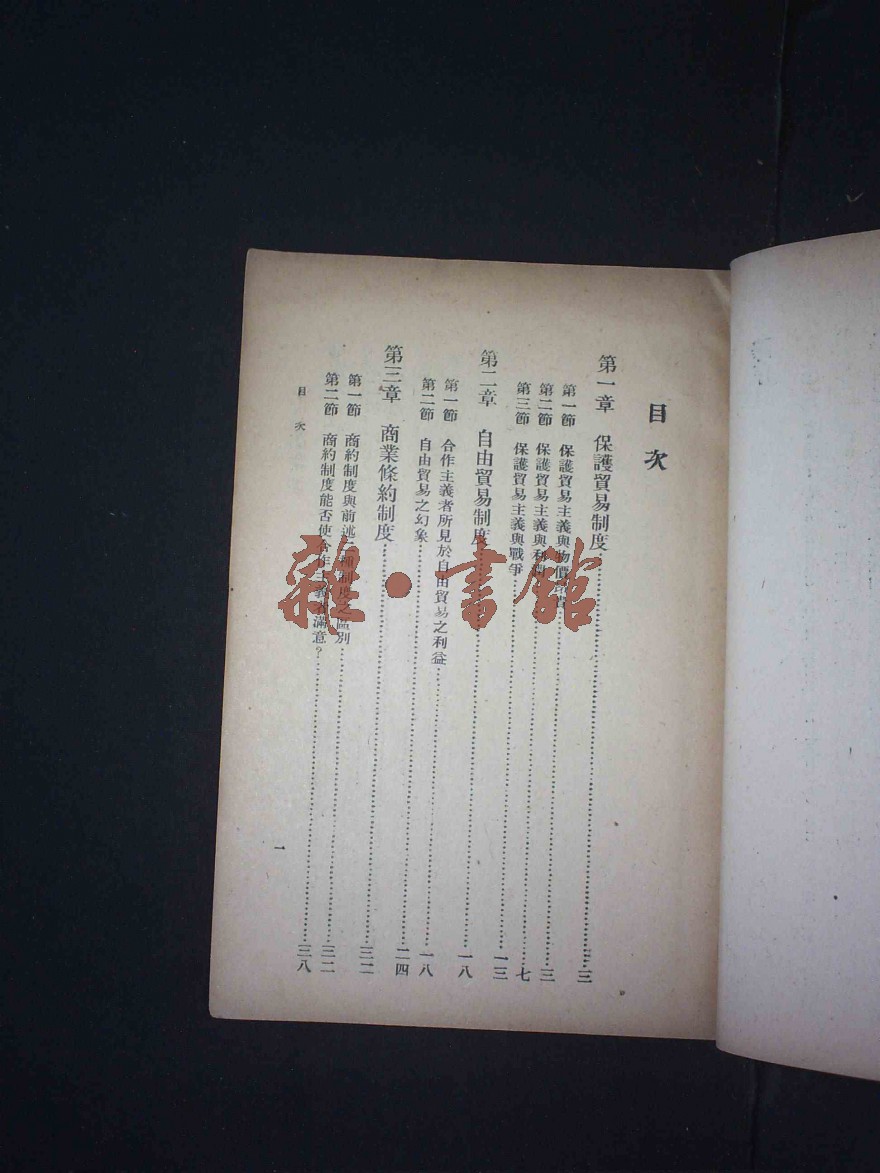 目次
第一章 保護貿易制度……三
第一節 保護貿易主義與物價貴……三
第二節 保護貿易主義與利……七
第三節 保護貿易主義與戰爭……一三
第二章 自由貿易制度……一八
第一節 合作主義者所見於自由貿易之利益……一八
第二節 自由貿易之幻象……二四
第三章 商業條約制度……三二
第一節 商約制度與前述種制度之區別……三二
第二節 商約制度能否使合作主義者滿意?……三八
目次
一
雜·書館